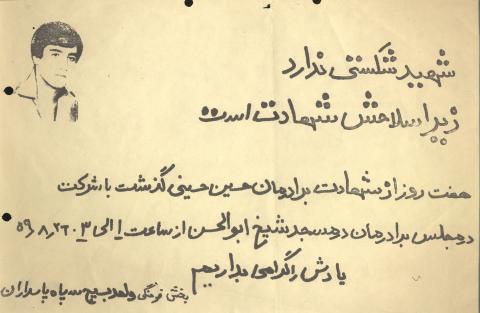 شهید شکستی ندارد
زیرا سلاحش شهادت است
هفت روز از شهادت برادرمان حسین حسینی گذشت با شرکت
در مجلس برادرمان در مسجد شیخ ابوالحسن از ساعت ۱ الی ۳ ۲۶ر۸ر۵۹
یادش را گرامی بداریم
بخش فرهنگی واحد بسیج سپاه پاسداران